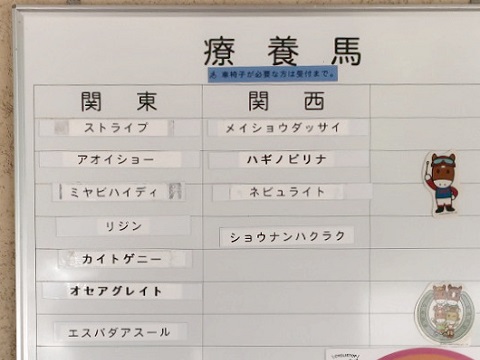 療養馬
車椅子が必要な方は受付まで。
関東 関西
ストライプ メイショウダッサイ
アオイショー ハギノピリナ
ミヤビハイディ ネビュライト
リジン
ショウナンハクラク
カイトゲニー
オセアグレイト
エスパダアスール